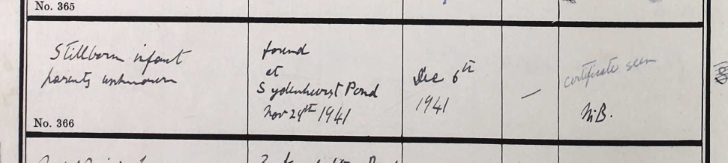 No. 365
Stillborn infant
parents unknown
No. 366
found
at
Sydenhurst Pond
Nov 29th 1941
Dec 6th
1941
—
certificate seen
M.B.